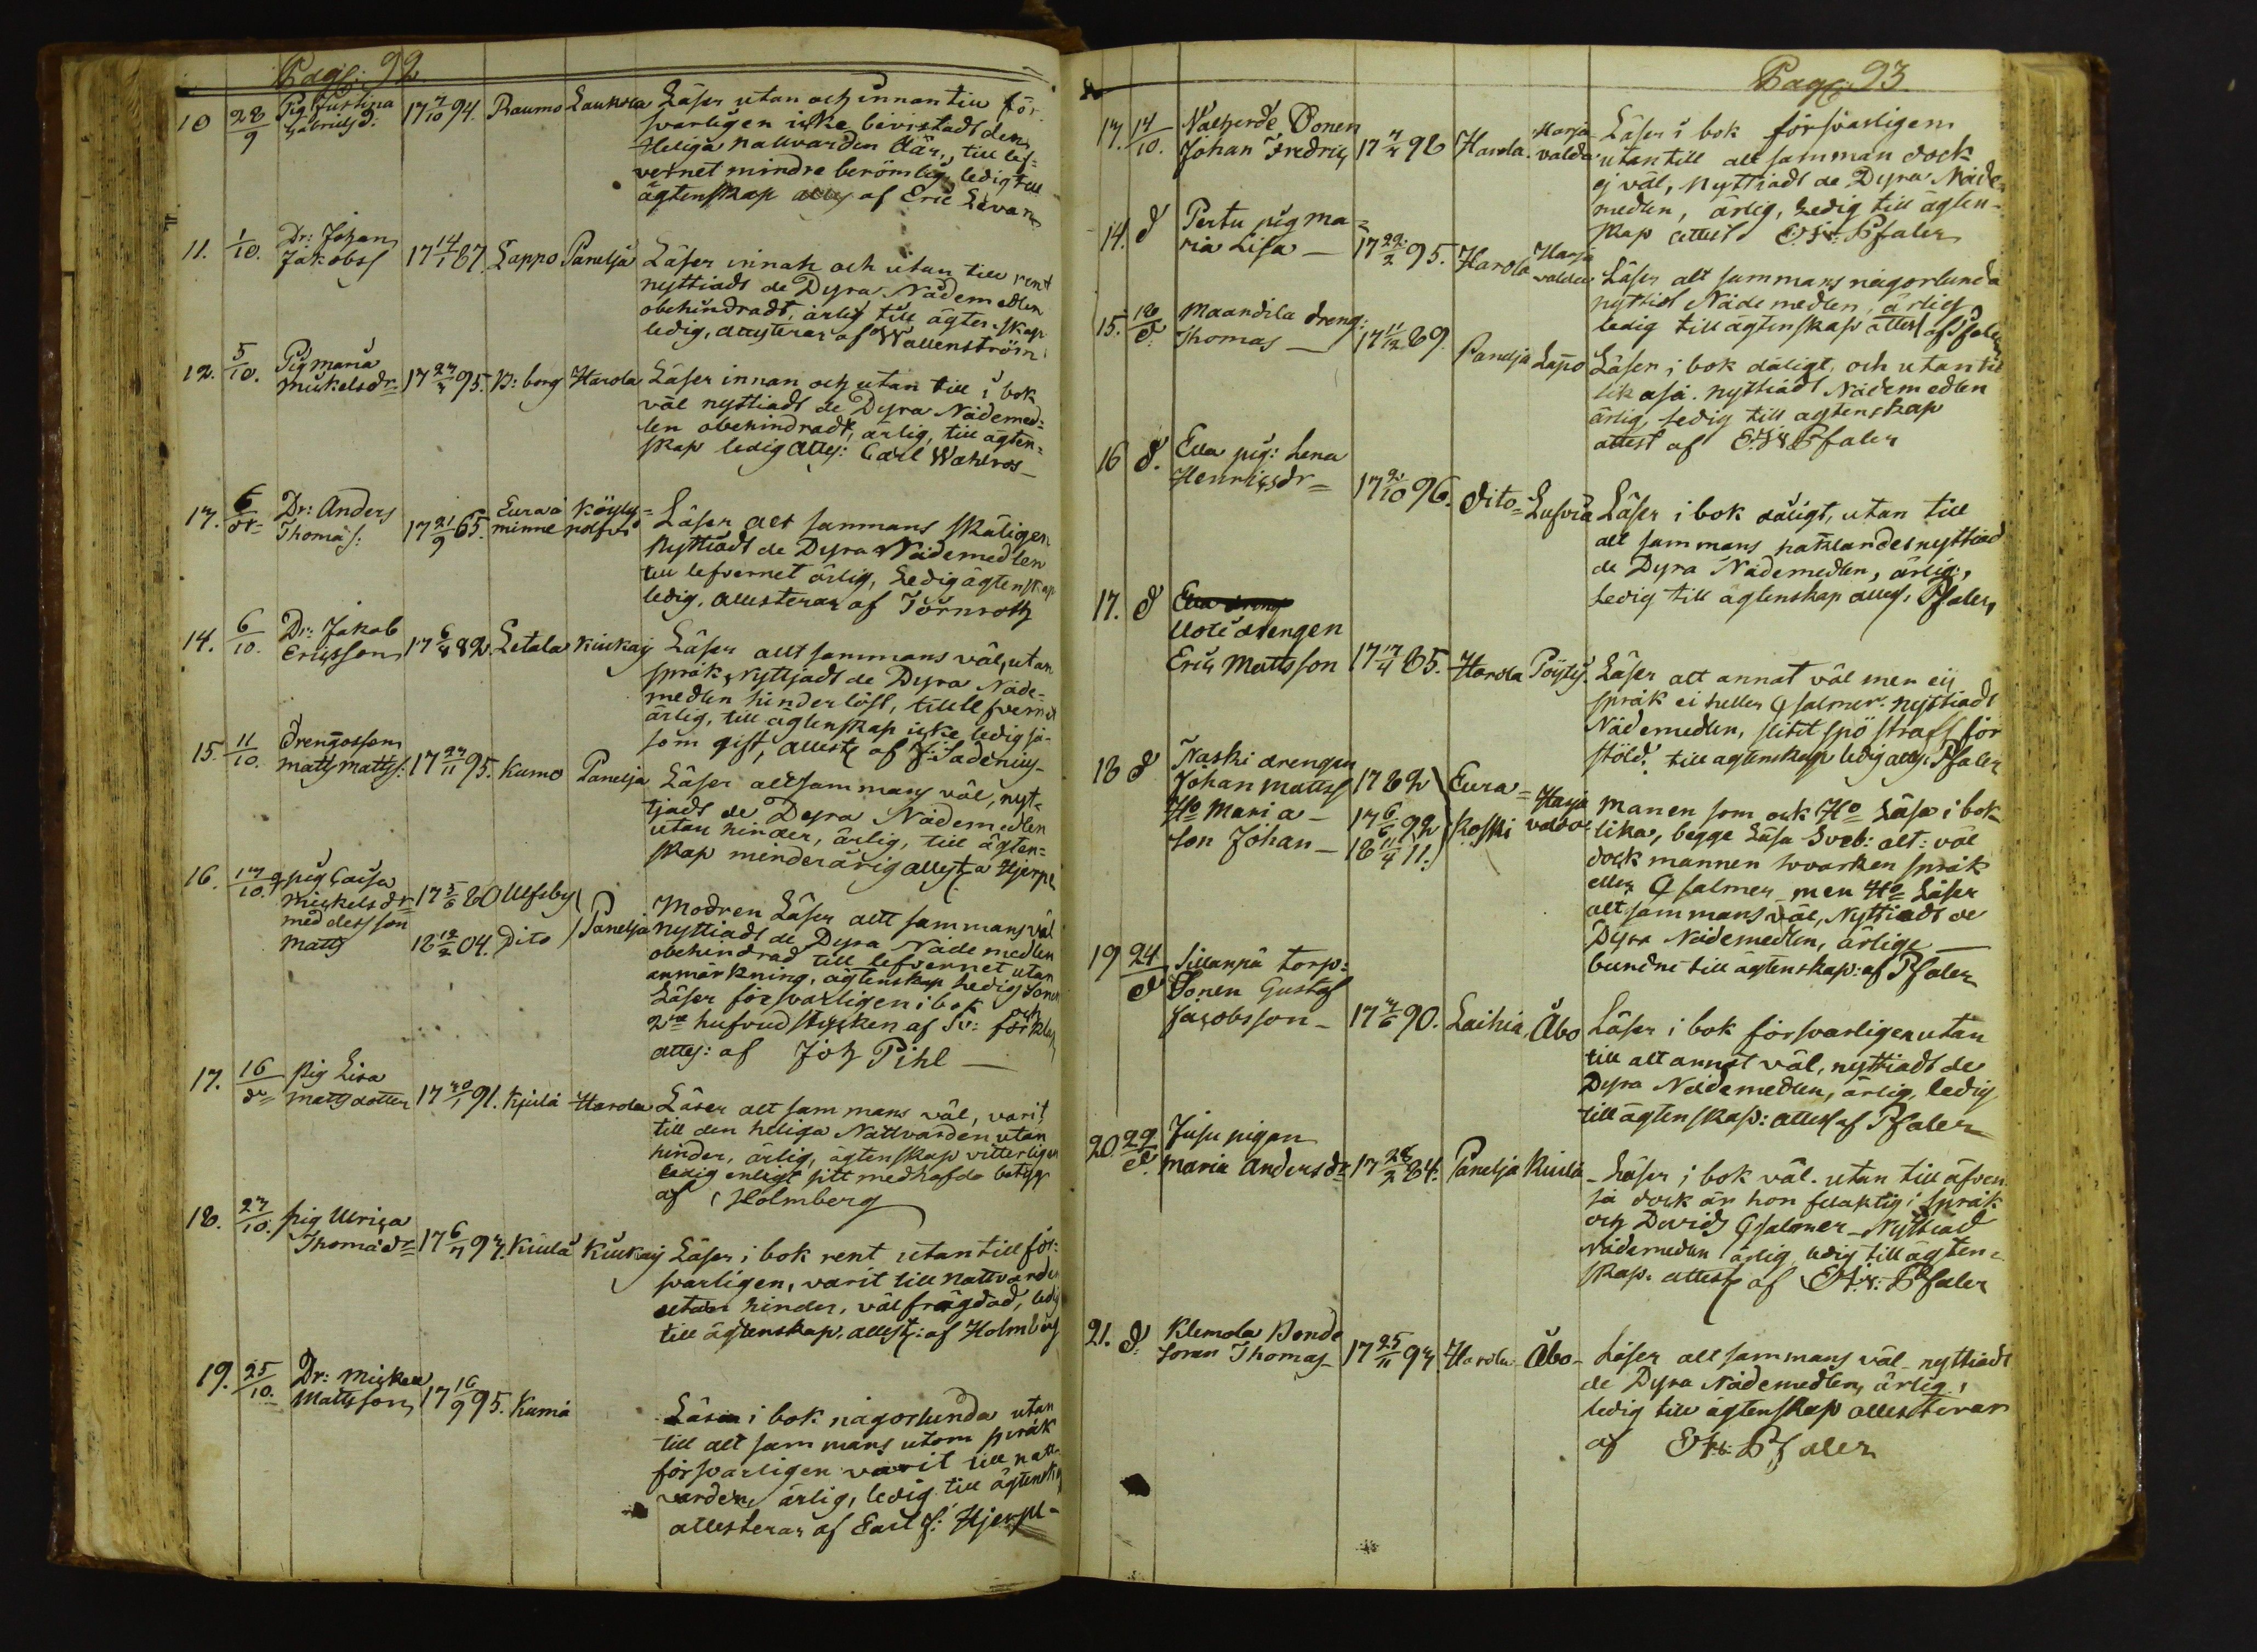 Pag: 92
10 28/9 Pig Justina Gabrielsd: 17 7/10 94. Raumo Laukola Läser utan och innan till för-
svarligen icke bevistadt den
Heliga nattvarden där, till lef-
vernet mindre berömlig, ledig till
ägtenskap attest af Eric Levan
11. 1/10. Dr: Johan Jakobss 17 14/1 87. Lappo Panelja Läser innan och utan till rent
nyttiadt de Dyra Nådemedlen
obehindradt, ärlig till ägtenskap
ledig, attesterar af Wallenström
12. 5/10. Pig Maria Mickelsdr 17 27/3 95. B:borg Harola Läser innan och utan till i bok
väl nyttiadt de Dyra Nådemed-
len obehindradt, ärlig, till ägten-
skap ledig attes: Carl Wahlros
13. 6/dt Dr: Anders Thomas: 17 21/9 65. Eura å minne Köyly- Läser alt sammans skäligen
Nyttiadt de Dyra Nådemedlen
till lefvernet ärlig, Ledig ägtenskap
ledig, attesterar af Törnroth
14. 6/10. Dr: Jakob Ericsson 17 6/8 82. Letala Kiukais Läser allt sammans väl, utan
språk, nyttjadt de Dyra Nåde-
medlen hinderlöst, till lefvernet
ärlig, till ägtenskap icke ledig så-
som gift, attest af F: Sadenius
15. 11/10. Drengossen Matts Matts: 17 27/11 95. Kumo Panelja Läser altsammans väl, nyt-
tjadt de Dyra Nådemedlen
utan hinder, ärlig, till ägten-
skap minderårig attest a Hjerpe
16. 13/10. pig Caisa Mickelsdr 17 5/6 80 Ulfsby
med dess son Matts 18 12/2 04. Dito Panelja Modren Läser allt sammans väl
nyttiadt de Dyra Nådemedlen
obehindrad till lefvernet utan
anmärkning, ägtenskap ledig Sonen
Läser försvarligen i bok och
2ne hufvudstycken af Sv: förklar
attes: af Joh Pihl
17. 16/dr pig Lisa Mattsdotter 17 30/1 91. Kjula Harola Läser alt sammans väl, varit
till den heliga Nattvarden utan
hinder, ärlig, ägtenskap vitterligen
ledig enligt sitt medhafda betyg
af Holmberg
18. 23/10. pig Ulrica Thomædr 17 6/7 93. Kiula Kiukais Läser i bok rent utantill för-
svarligen, varit till nattvarden
utan hinder, välfrägdad, ledig
till ägtenskap. attest: af Holmberg
19. 25/10. Dr: Mickel Mattsson 17 16/9 95. Kumå Läser i bok någorlunda utan
till alt sammans utom språk
försvarligen varit till natt-
varden, ärlig, ledig till ägtenskap
attesterar af Carl J: Hjerpe
Pag: 93
13. 14/10. Sonen Johan Fredric 17 98 Harola. Harjavalda Läser i bok försvarligen
utantill alt samman dock
ej väl, nyttiadt de Dyra Nåde-
medlen, ärlig, Ledig till ägten-
skap attest Pfaler
14. d Pertu pig Ma-
ria Lisa 17 22/2 95. Harola Harjavalda Läser alt sammans någorlunda
nyttiat Nådemedlen, ärlig
ledig till ägtenskap attest af Pfaler
15. 18/d. Maandila dreng: Thomas 17 11/12 89. Panelja Lapo Läser i bok dåligt, och utantil
lika så. nyttiadt Nådemedlen
ärlig, ledig till ägtenskap
attest af Pfaler
16 d. Ella pig: Lena Henricsdr 17 2/10 96. dito Lufvia Läser i bok dåligt, utan till
alt sammans hacklandes nyttiad
de Dyra Nådemedlen, ärlig,
Ledig till ägtenskap attest, Pfaler
17. d
drengen
Eric Mattsson 17 17/4 85. Harola Pöytis. Läser alt annat väl men ej
språk ei heller Psalmer. nyttiadt
Nådemedlen, slitit spö straff för
stöld. till ägtenskap ledig attes. Pfaler
18 d Naski drengen
Johan Mattss 1782 Eura- Harja
Ho Maria 17 6/6 92 Koski valda
Son Johan 18 11/4 11. Manen som ock Ho Läser i bok
lika, begge Läsa Sveb: alt: väl
dock mannen hvarken språk
eller Psalmer men Ho Läser
alt sammans väl, Nyttiadt de
Dyra Nådemedlen, ärlige
bundne till ägtenskap: af Pfaler
19 24/d Sillanpä torp:
Sonen Gustaf
Jacobsson 17 7/6 90. Laihia, Åbo Läser i bok försvarligen utan
till alt annat väl, nyttiadt de
Dyra Nådemedlen, ärlig, ledig
till ägtenskap: attest af Pfaler
20. 29/d. Jusu pigan
Maria Andersdr 17 28/2 84. Panelja Kiula Läser i bok väl. utan till äfven
så dock är hon felaktig i språk
och Davids Psalmer Nyttiad
Nådemedlen ärlig, ledig till ägten-
skap. attest af Pfaler
21. d. Klemola Bonde
sonen Thomas 17 25/11 93. Harola Åbo Läser alt sammans väl nyttiadt
de Dyra Nådemedlen, ärlig,
ledig till ägtenskap attesterar
af Pfaler